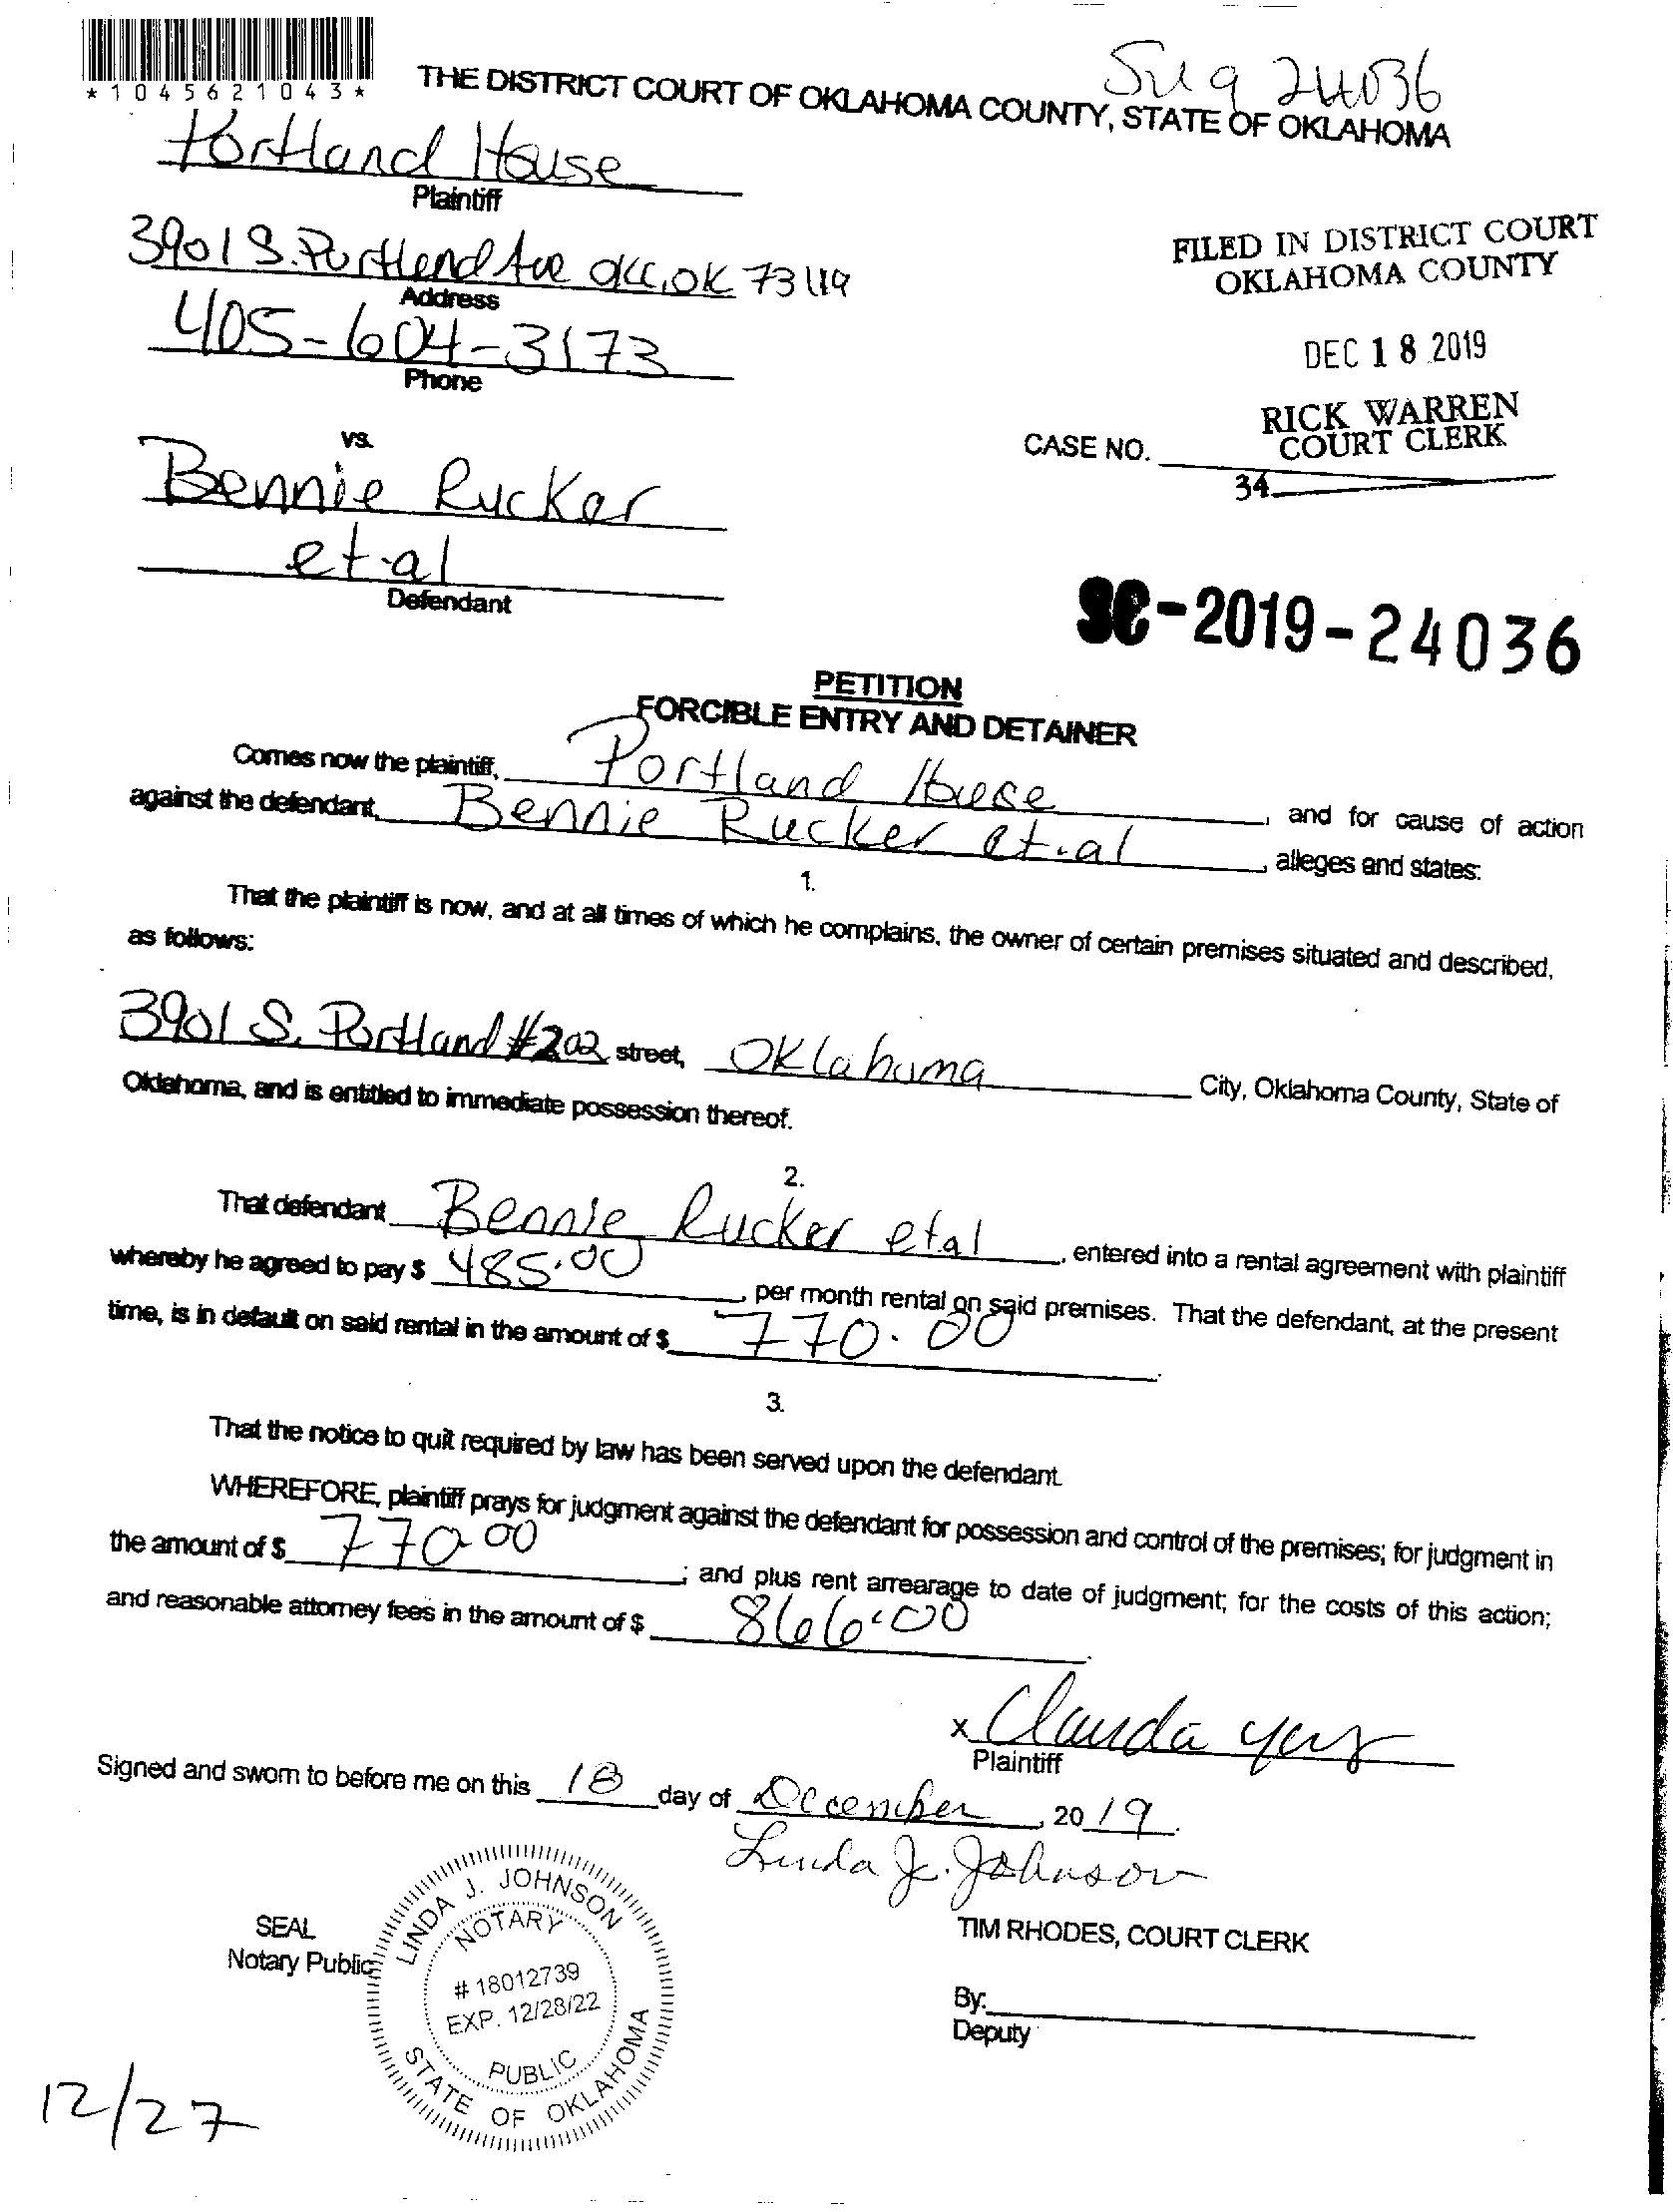 *1045621043*
Sug 24036
THE DISTRICT COURT OF OKLAHOMA COUNTY, STATE OF OKLAHOMA
Portland House
Plaintiff
3901 S. Portland Ave OKC, OK 73119
Address
405-604-3173
Phone
FILED IN DISTRICT COURT
OKLAHOMA COUNTY
DEC 18 2019
RICK WARREN
COURT CLERK
34
vs.
CASE NO.
Bennie Rucker
et.al
Defendant
SC-2019-24036
PETITION
FORCIBLE ENTRY AND DETAINER
Comes now the plaintiff, Portland House
against the defendant, Bennie Rucker et.al, and for cause of action
alleges and states:
1.
That the plaintiff is now, and at all times of which he complains, the owner of certain premises situated and described,
as follows:
3901 S. Portland #202 street, Oklahoma City, Oklahoma County, State of
Oklahoma, and is entitled to immediate possession thereof.
2.
That defendant Bennie Rucker etal, entered into a rental agreement with plaintiff
whereby he agreed to pay $ 485.00, per month rental on said premises. That the defendant, at the present
time, is in default on said rental in the amount of $ 770.00.
3.
That the notice to quit required by law has been served upon the defendant.
WHEREFORE, plaintiff prays for judgment against the defendant for possession and control of the premises; for judgment in
the amount of $ 770.00; and plus rent arrearage to date of judgment; for the costs of this action;
and reasonable attorney fees in the amount of $ 866.00.
x Clauda
Plaintiff
Signed and sworn to before me on this 18 day of December, 2019.
Linda J. Johnson
SEAL
Notary Public
LINDA J. JOHNSON
NOTARY
# 18012739
EXP. 12/28/22
PUBLIC
STATE OF OKLAHOMA
TIM RHODES, COURT CLERK
By:
Deputy
12/27